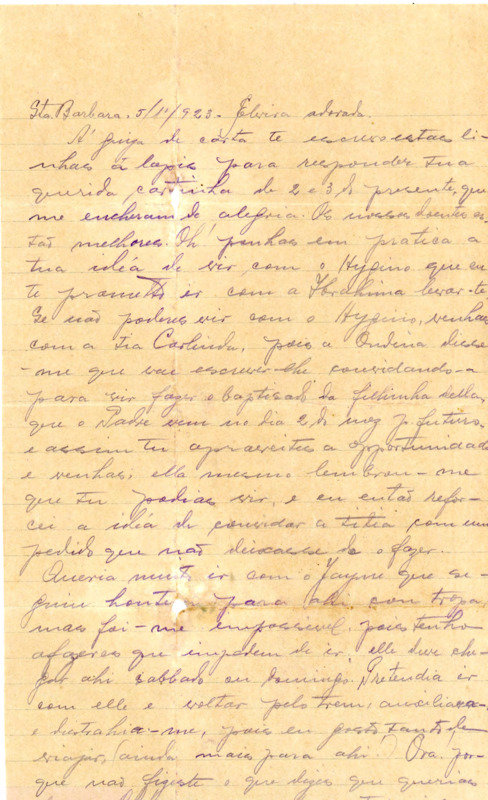 Sta. Barbara, 5/11/923 - Elvira adorada.
A' guiza de carta te escrevo estas li-
nhas á lapis para responder tua
querida cartinha de 2 e 3 do presente, que
me encheram de alegria. Os nossos doentes es-
tão melhores. Oh! ponhas em pratica a
tua idéa de vir com o Hygino que eu
te prometto ir com a Ibrahima levar-te
Se não poderes vir com o Hygino, venhas
com a tia Carlinda, pois a Ondina disse-
-me que vae escrever-lhe convidando-a
para vir fazer o baptisado da filhinha della,
que o Padre vem no dia 2 do mez p. futuro,
e assim tu aproveites a opportunidade
e venhas; ella mesmo lembrou-me
que tu podias vir, e eu então refor-
cei a idéa de convidar a titia com um
pedido que não deixasse de o fazer.
Queria muito ir com o Jayme que se-
guiu hontem para ahi com tropa,
mas foi-me impossivel, pois tenho
afazeres que impedem de ir; elle deve che-
gar ahi sabbado ou domingo. Pretendia ir
com elle e voltar pelo trem; auxiliava-o
e distrahia-me, pois eu gosto tanto de
viajar, (ainda mais para ahi!) Ora, por-
que não fizeste o que dizes que querias